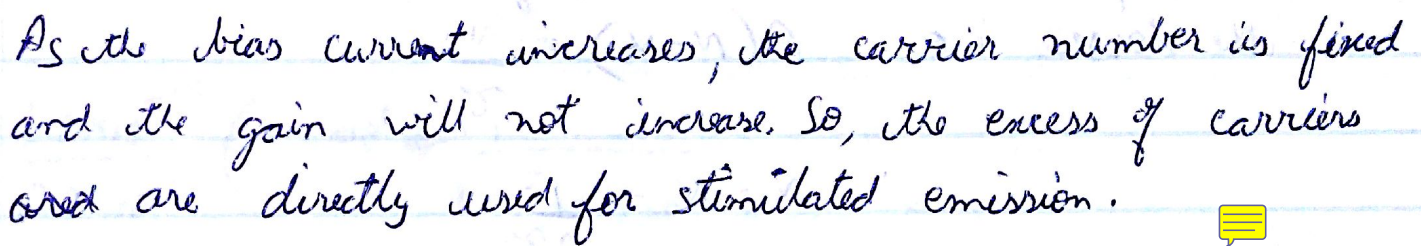 As the bias current increases, the carrier number is fixed
and the gain will not increase. So, the excess of carriers
are directly used for stimulated emission.